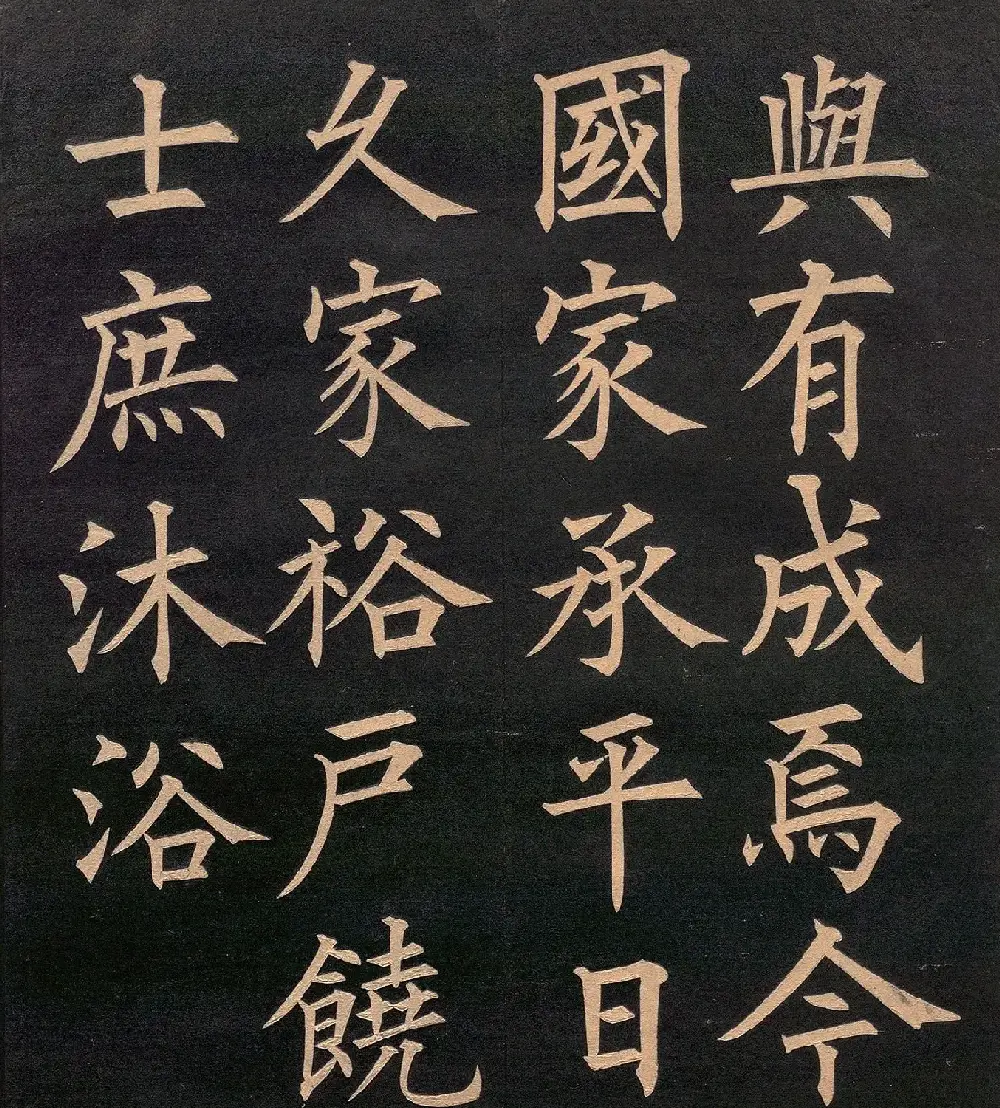 與有成焉今
國家承平日
久家裕戶饒
士庶沐浴